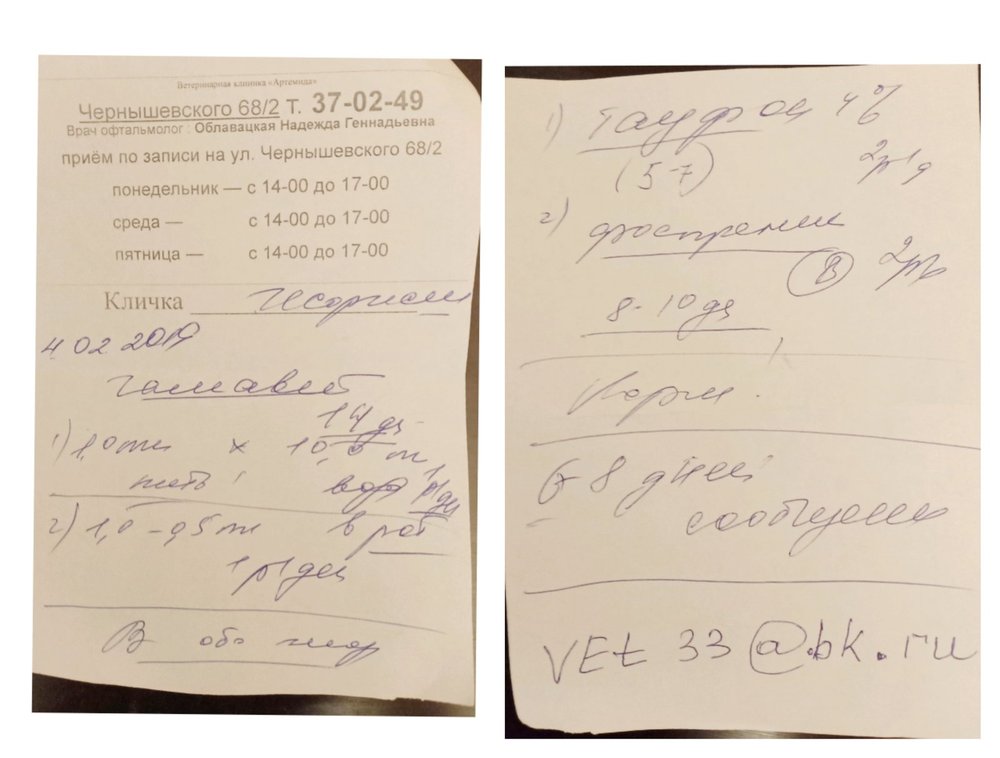 Ветеринарная клиника «Артемида»
Чернышевского 68/2 Т. 37-02-49
Врач офтальмолог : Облавацкая Надежда Геннадьевна
приём по записи на ул. Чернышевского 68/2
понедельник — с 14-00 до 17-00
среда — с 14-00 до 17-00
пятница — с 14-00 до 17-00
Кличка
4.02.2019
Гамавит
14 дн
1) 1,0 мл х 10,0 мл
пить! 1р/дн
2) 1,0 - 0,5 мл в рот
1р/ден
В оба
1) Тауфон 4%
(5-7) 2р/д
2) фоспренил
В 2р/д
8-10 дн
Корм.
6-8 дней
сообщение
VEt 33@bk.ru